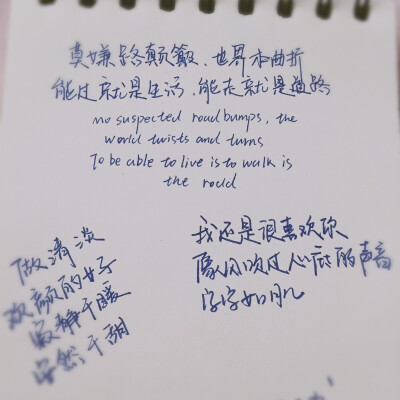 莫嫌路颠簸、世界本曲折
能过就是生活,能走就是道路
no suspected road bumps, the
world twists and turns
To be able to live is to walk is
the road
做清淡
欢颜的女子
寂静千暖
安然千甜
我还是很喜欢你
像风吹过心底的声音
字字如